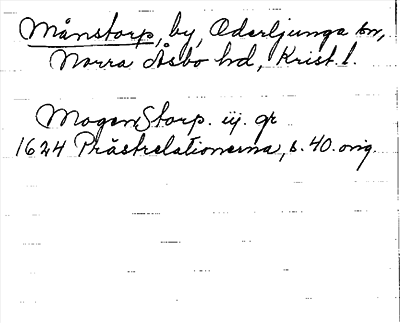 Månstorp, by, Oderljunga sn,
Norra Åsbo hd, Krist. l.
Mogens Storp. iij. gr
1624 Prästrelationerna, s. 40. orig.